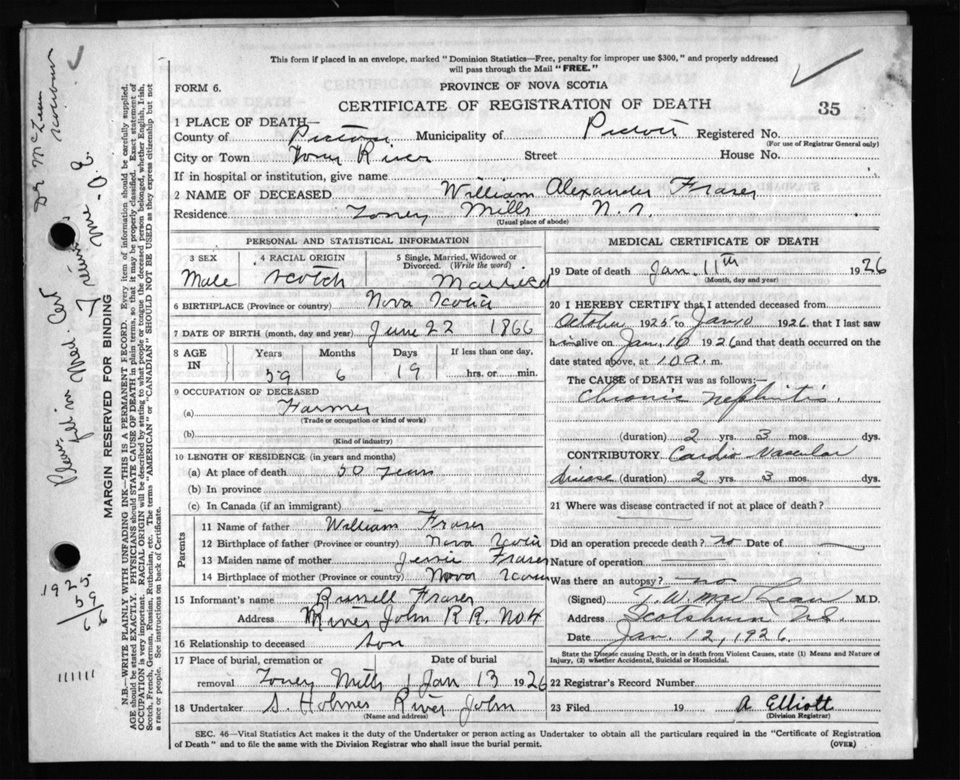 This form if placed in an envelope, marked "Dominion Statistics—Free, penalty for improper use $300," and properly addressed
will pass through the Mail "FREE."
FORM 6.
PROVINCE OF NOVA SCOTIA
CERTIFICATE OF REGISTRATION OF DEATH
35
1 PLACE OF DEATH—
County of Pictou Municipality of Pictou Registered No.
(For use of Registrar General only)
City or Town Tony River Street House No.
If in hospital or institution, give name
2 NAME OF DECEASED William Alexander Fraser
Residence Toney Mills N.S.
(Usual place of abode)
PERSONAL AND STATISTICAL INFORMATION
3 SEX 4 RACIAL ORIGIN 5 Single, Married, Widowed or
Divorced. (Write the word)
Male Scotch Married
6 BIRTHPLACE (Province or country) Nova Scotia
7 DATE OF BIRTH (month, day and year) June 22 1866
8 AGE IN Years Months Days If less than one day,
59 6 19 hrs. or min.
9 OCCUPATION OF DECEASED
(a) Farmer
(Trade or occupation or kind of work)
(b)
(Kind of industry)
10 LENGTH OF RESIDENCE (in years and months)
(a) At place of death 50 years
(b) In province
(c) In Canada (if an immigrant)
Parents
11 Name of father William Fraser
12 Birthplace of father (Province or country) Nova Scotia
13 Maiden name of mother Jessie Fraser
14 Birthplace of mother (Province or country) Nova Scotia
15 Informant's name Russell Fraser
Address River John R.R. No 4
16 Relationship to deceased son
17 Place of burial, cremation or Date of burial
removal Toney Mills Jan 13 1926
18 Undertaker S. Holmes River John
(Name and address)
MEDICAL CERTIFICATE OF DEATH
19 Date of death Jan. 11th 1926
(Month, day and year)
20 I HEREBY CERTIFY that I attended deceased from
October 1925 to Jan 10 1926, that I last saw
him alive on Jan. 10 1926 and that death occurred on the
date stated above, at 10 a. m.
The CAUSE of DEATH was as follows:—
Chronic Nephritis.
(duration) 2 yrs. 3 mos. dys.
CONTRIBUTORY Cardio Vascular
disease (duration) 2 yrs. 3 mos. dys.
21 Where was disease contracted if not at place of death?
Did an operation precede death? no Date of
Nature of operation
Was there an autopsy? no
(Signed) T. W. MacLean M.D.
Address Scotsburn N.S.
Date Jan. 12, 1926.
State the Disease causing Death, or in death from Violent Causes, state (1) Means and Nature of
Injury, (2) whether Accidental, Suicidal or Homicidal.
22 Registrar's Record Number
23 Filed 19 A Elliott
(Division Registrar)
SEC. 46—Vital Statistics Act makes it the duty of the Undertaker or person acting as Undertaker to obtain all the particulars required in the "Certificate of Registration
of Death" and to file the same with the Division Registrar who shall issue the burial permit.
(OVER)
MARGIN RESERVED FOR BINDING
N.B.—WRITE PLAINLY WITH UNFADING INK—THIS IS A PERMANENT RECORD. Every item of information should be carefully supplied.
AGE should be stated EXACTLY. PHYSICIANS should STATE CAUSE OF DEATH in plain terms, so that it may be properly classified. Exact statement of
OCCUPATION is very important. RACIAL ORIGIN will be described by stating to what people or tongue the deceased person belonged, whether English, Irish,
Scotch, French, German, Russian, Ruthenian, etc. The terms "AMERICAN" or "CANADIAN" SHOULD NOT BE USED as they express citizenship but not
a race or people. See instructions on back of Certificate.
Dr McLean
Please fill in Med. Cert
1925
59
66